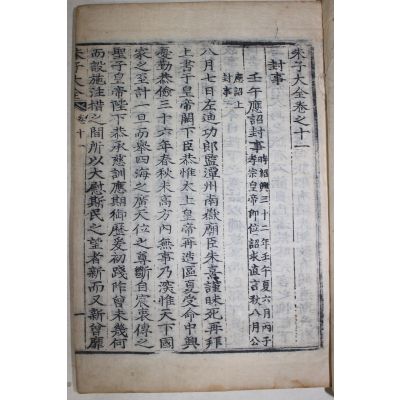 朱子大全卷之十一
封事
壬午應詔封事
時紹興三十二年壬午夏六月丙子
孝宗皇帝即位詔求直言秋八月公
應詔上
封事
八月七日左迪功郎監潭州南嶽廟臣朱熹謹昧死再拜
上書于皇帝闕下臣恭惟太上皇帝再造區夏受命中興
憂勤恭儉三十六年春秋未高方內無事乃深惟天下國
家之至計一旦而舉四海之廣天位之尊斷自宸衷傳之
聖子皇帝陛下恭承慈訓應期御歷爰初踐阼曾未幾何
而設施注措之間所以大慰斯民之望者新而又新曾靡
朱子大全
卷十一
一